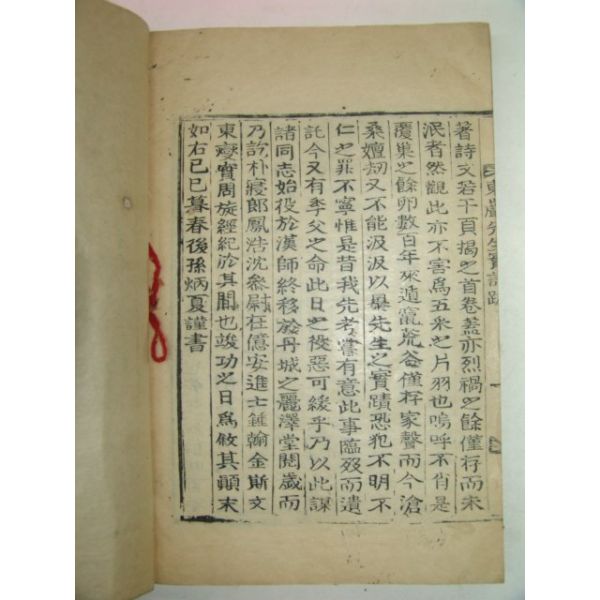 著詩文若干頁揭之首卷蓋亦烈禍之餘僅存而未
泯者然觀此亦不害爲五采之片羽也嗚呼不肖是
覆巢之餘卵數百年來遁竄荒谷僅存家聲而今滄
桑嬗刧又不能汲汲以暴先生之實蹟恐犯不明不
仁之罪不寧惟是昔我先考嘗有意此事臨歿而遺
託今又有季父之命此日之役惡可緩乎乃以此謀
諸同志始役於漢師終移於丹城之麗澤堂閱歲而
乃訖朴寢郎鳳浩沈參尉在億安進士鍾翰金斯文
東燮實周旋經紀於其間也竣功之日爲攸其顚末
如右己巳暮春後孫炳夏謹書
東巖先生實記跋
一